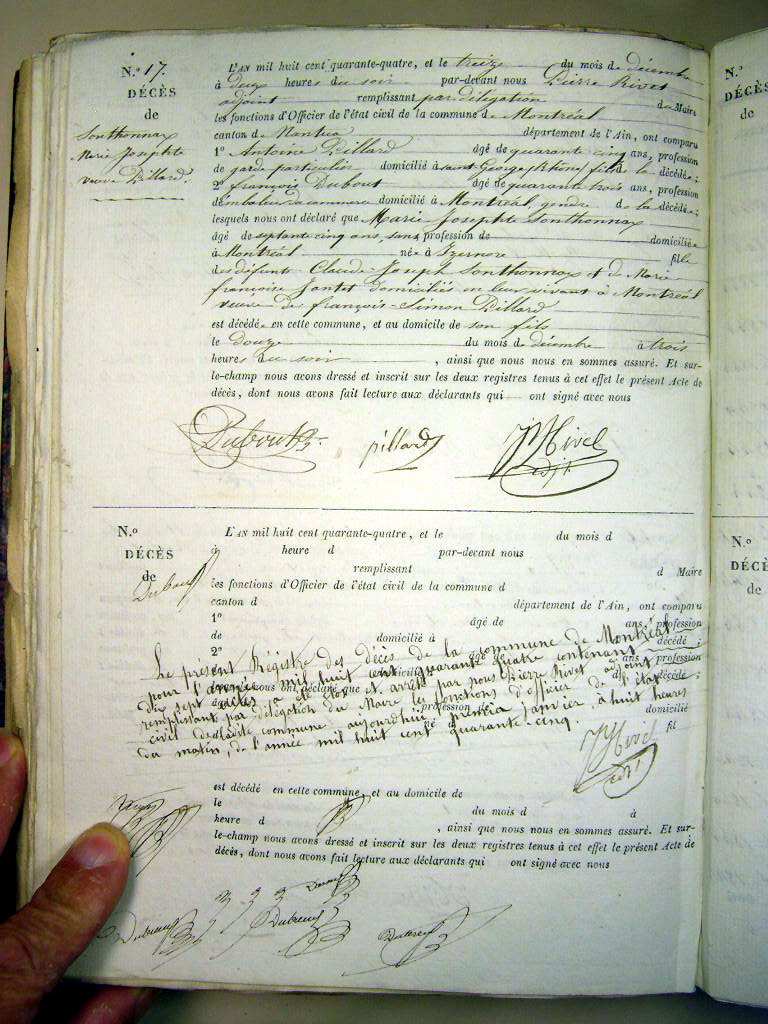 N.º 17.
DÉCÈS
de
Sonthonnax
Marie Josephte
veuve Pillard.
L'AN mil huit cent quarante-quatre, et le treize du mois de décembre
à deux heures du soir par-devant nous Pierre Rivet
adjoint remplissant par délégation du Maire
les fonctions d'Officier de l'état civil de la commune de Montréal
canton de Nantua département de l'Ain, ont comparu
1º Antoine Pillard âgé de quarante cinq ans, profession
de garde particulier domicilié à saint George (Rhône) fils de la décédée ;
2º françois Dubout âgé de quarante trois ans, profession
domicilié à Montréal, gendre de la décédée ;
lesquels nous ont déclaré que Marie Josephte Sonthonnax
âgé de septante cinq ans, sans profession de domiciliée
à Montréal née à Izernore fille
des défunts Claude Joseph Sonthonnax et de Marie
françoise Jantet domiciliés en leur vivant à Montréal
veuve de françois-Simon Pillard
est décédée en cette commune, et au domicile de son fils
le douze du mois de décembre à trois
heures du soir , ainsi que nous nous en sommes assuré. Et sur-
le-champ nous avons dressé et inscrit sur les deux registres tenus à cet effet le présent Acte de
décès, dont nous avons fait lecture aux déclarants qui ont signé avec nous
Dubout pillard Rivet
adjt
N.º
DÉCÈS
de
L'AN mil huit cent quarante-quatre, et le du mois d
à heure d par-devant nous
remplissant d Maire
les fonctions d'Officier de l'état civil de la commune d
canton d département de l'Ain, ont comparu
1º âgé de ans, profession
de domicilié à d décédé ;
2º âgé de ans, profession
domicilié d décédé ;
lesquels nous ont déclaré que
profession de domicilié
né à fil
Le présent Régistre des Décès de la commune de Montréal
pour l'année mil huit cent quarante quatre contenant
dix sept actes a été clos et arrêté par nous Pierre Rivet adjoint
remplissant par délégation du Maire les fonctions d'officier de l'état
civil de ladite commune aujourd'hui premier janvier, à huit heures
du matin, de l'année mil huit cent quarante-cinq.
Rivet
adjt
est décédé en cette commune, et au domicile de
le du mois d à
heure d , ainsi que nous nous en sommes assuré. Et sur-
le-champ nous avons dressé et inscrit sur les deux registres tenus à cet effet le présent Acte de
décès, dont nous avons fait lecture aux déclarants qui ont signé avec nous
Dubreuil Dubreuil
N.º
DÉCÈS
de
N.º
DÉCÈ
de